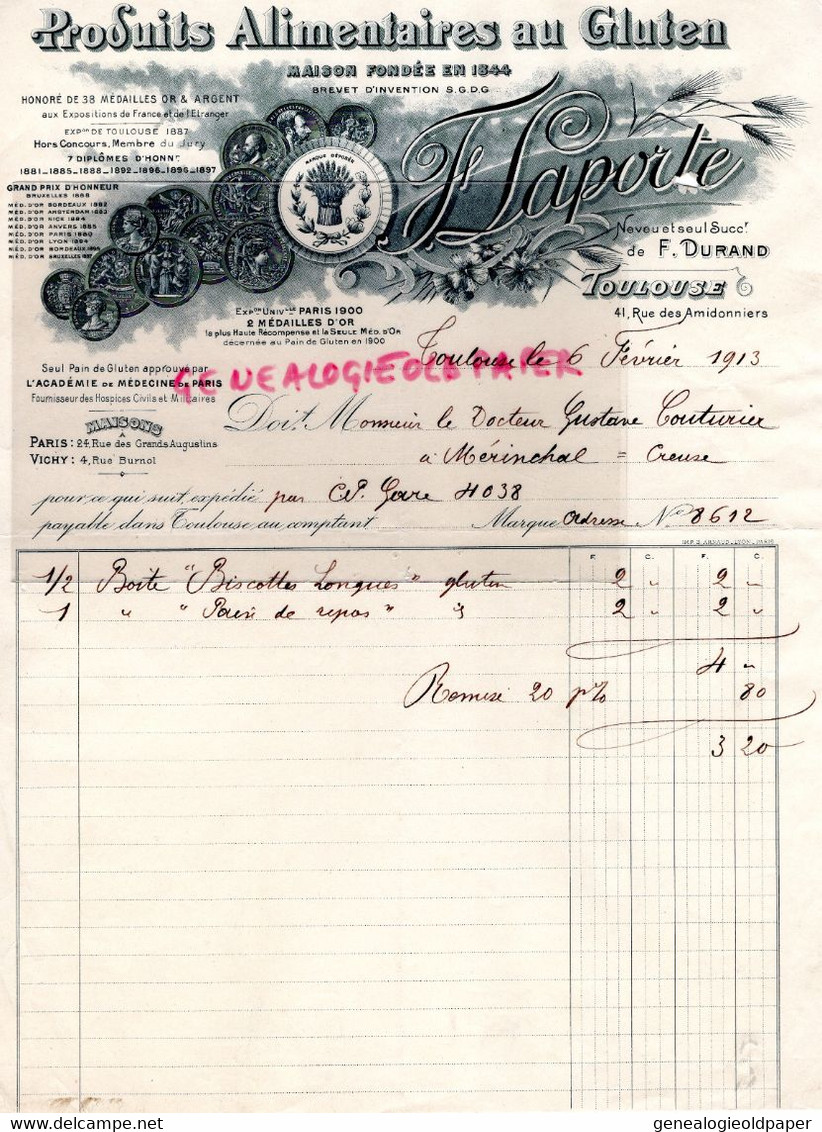 Produits Alimentaires au Gluten
MAISON FONDÉE EN 1844
BREVET D'INVENTION S.G.D.G
HONORÉ DE 38 MÉDAILLES OR & ARGENT
aux Expositions de France et de l'Etranger
EXPon DE TOULOUSE 1887
Hors Concours, Membre du Jury
7 DIPLÔMES D'HONNr
1881-1885-1888-1892-1896-1896-1897
GRAND PRIX D'HONNEUR
BRUXELLES 1888
MÉD. D'OR BORDEAUX 1882
MÉD. D'OR AMSTERDAM 1883
MÉD. D'OR NICE 1884
MÉD. D'OR ANVERS 1885
MÉD. D'OR PARIS 1880
MÉD. D'OR LYON 1894
MÉD. D'OR BORDEAUX 1895
MÉD. D'OR BRUXELLES 1897
MARQUE DÉPOSÉE
F. Laporte
Neveu et seul Succr
de F. DURAND
TOULOUSE
41, Rue des Amidonniers
EXPon UNIVlle PARIS 1900
2 MÉDAILLES D'OR
la plus Haute Récompense et la SEULE MÉD. D'OR
décernée au Pain de Gluten en 1900
Toulouse le 6 Février 1913
GENEALOGIEOLDPAPER
Seul Pain de Gluten approuvé par
L'ACADÉMIE DE MÉDECINE DE PARIS
Fournisseur des Hospices Civils et Militaires
MAISONS
A
PARIS: 24, Rue des Grands Augustins
VICHY: 4, Rue Burnol
Doit Monsieur le Docteur Gustave Couturier
à Mérinchal = Creuse
pour ce qui suit expédié par CP. Gare 4038
payable dans Toulouse au comptant Marque Adresse No 8612
IMP. B. ARNAUD, LYON-PARIS
F. C. F. C.
1/2 Boite "Biscottes Longues" gluten 2 " 2 "
1 " "Pain de repas" " 2 " 2 "
4 "
Remise 20 p% 80
3 20
genealogieoldpaper